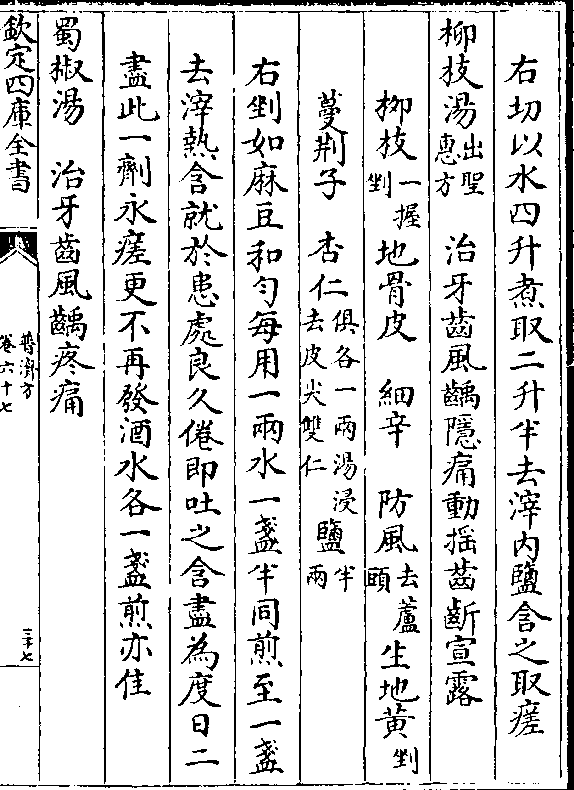 右切以水四升煮取二升半去滓内鹽含之取瘥
柳枝湯出聖惠方 治牙齒風齲隱痛動揺齒齗宣露
栁枝一握剉 地骨皮 細辛 防風去蘆頭 生地黄剉
蔓荆子 杏仁俱各一兩湯浸去皮尖雙仁 鹽半兩
右剉如麻豆和匀每用一兩水一盞半同煎至一盞
去滓熱含就於患處良久倦即吐之含盡為度日二
盡此一劑永瘥更不再發酒水各一盞煎亦佳
蜀椒湯 治牙齒風齲疼痛
欽定四庫全書
普濟方
卷六十七
三十七